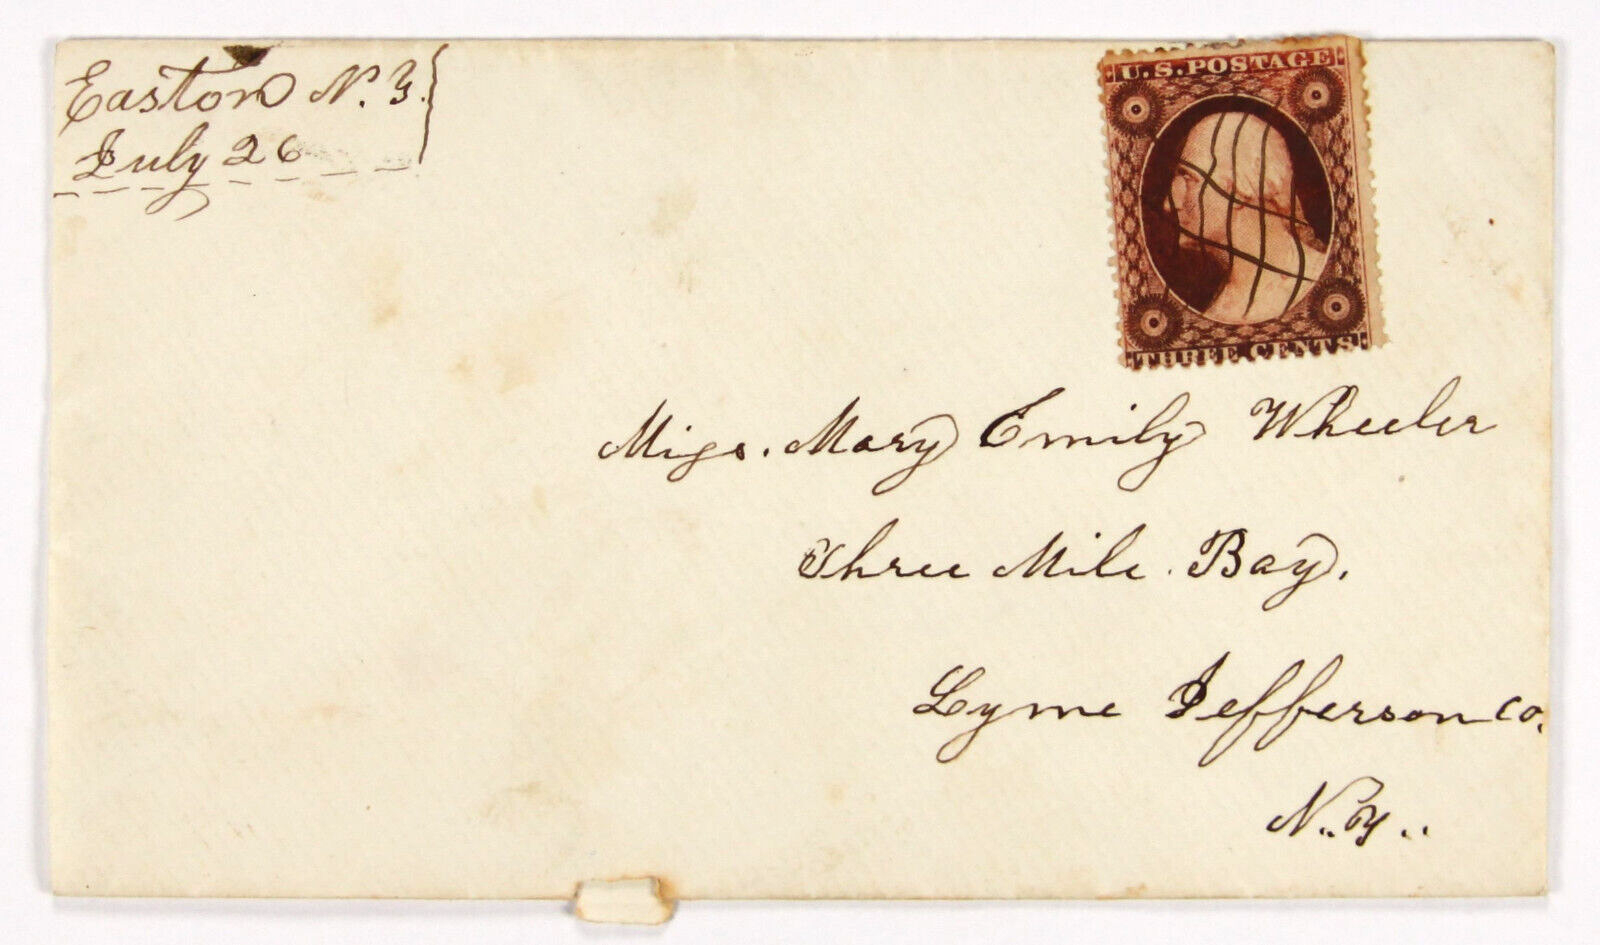 Easton N. Y.
July 26
U.S. POSTAGE
THREE CENTS
Miss. Mary Emily Wheeler
Three Mile Bay.
Lyme Jefferson Co.
N.. Y..